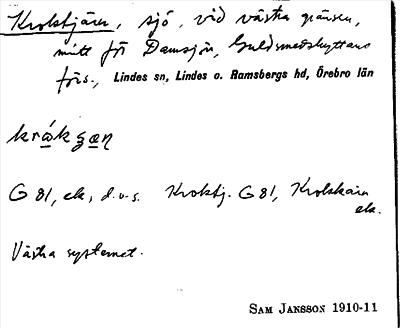 Kroktjärn, sjö, vid västra gränsen,
mitt för Damsjön, Guldsmedshyttans
förs., Lindes sn, Lindes o. Ramsbergs hd, Örebro län
G 81, ek, d.v.s. Kroktj. G 81, Krokkärn
ek.
Västra systemet.
SAM JANSSON 1910-11